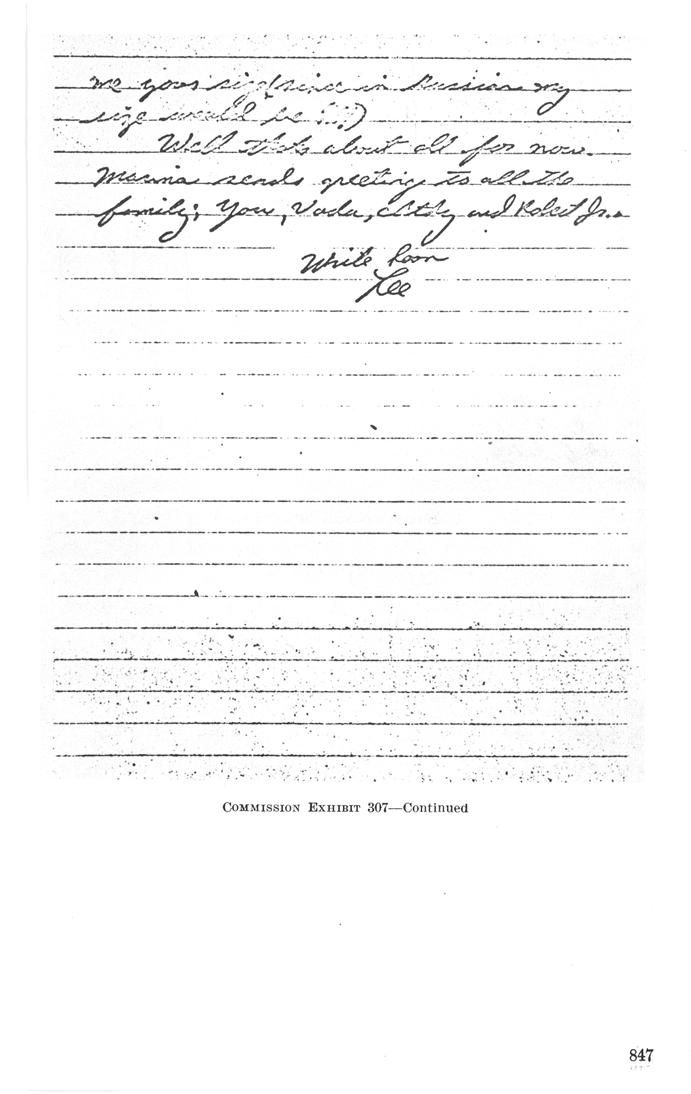 me your size (since in Russia my
size would be
Well thats about all for now.
Marina sends greeting to all the
family; You, Vada, Cathy and Robert Jr.
Write Soon
Lee
COMMISSION EXHIBIT 307—Continued
847